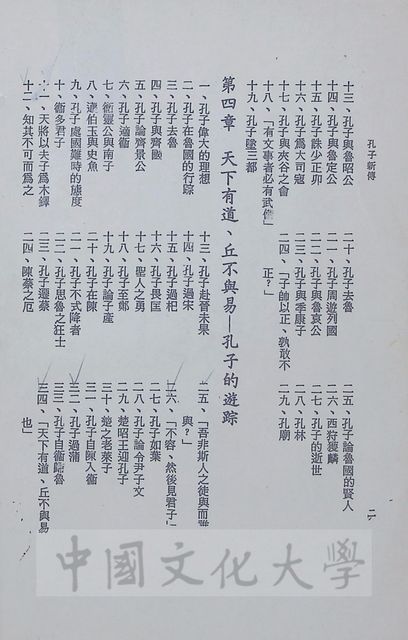 孔子新傳
二
十三、孔子與魯昭公
十四、孔子與魯定公
十五、孔子誅少正卯
十六、孔子爲大司寇
十七、孔子與夾谷之會
十八、「有文事者必有武備」
十九、孔子墮三都
二十、孔子去魯
二一、孔子周遊列國
二二、孔子與魯哀公
二三、孔子與季康子
二四、「子帥以正、孰敢不
正？」
二五、孔子論魯國的賢人
二六、西狩獲麟
二七、孔子的逝世
二八、孔林
二九、孔廟
第四章　天下有道、丘不與易—孔子的遊踪
一、孔子偉大的理想
二、孔子在魯國的行踪
三、孔子去魯
四、孔子與齊國
五、孔子論齊景公
六、孔子適衞
七、衞靈公與南子
八、蘧伯玉與史魚
九、孔子處國難時的態度
十、衞多君子
十一、天將以夫子爲木鐸
十二、知其不可而爲之
十三、孔子赴晉未果
十四、孔子過宋
十五、孔子過杞
十六、孔子畏匡
十七、聖人之勇
十八、孔子至鄭
十九、孔子論子產
二十、孔子在陳
二一、孔子不式降者
二二、孔子思魯之狂士
二三、孔子遷蔡
二四、陳蔡之厄
二五、「吾非斯人之徒與而誰
與？」
二六、「不容、然後見君子」
二七、孔子如葉
二八、孔子論令尹子文
二九、楚昭王迎孔子
三十、楚之老萊子
三一、孔子自陳入衞
三二、孔子過蒲
三三、孔子自衞歸魯
三四、「天下有道、丘不與易
也」
中國文化大學